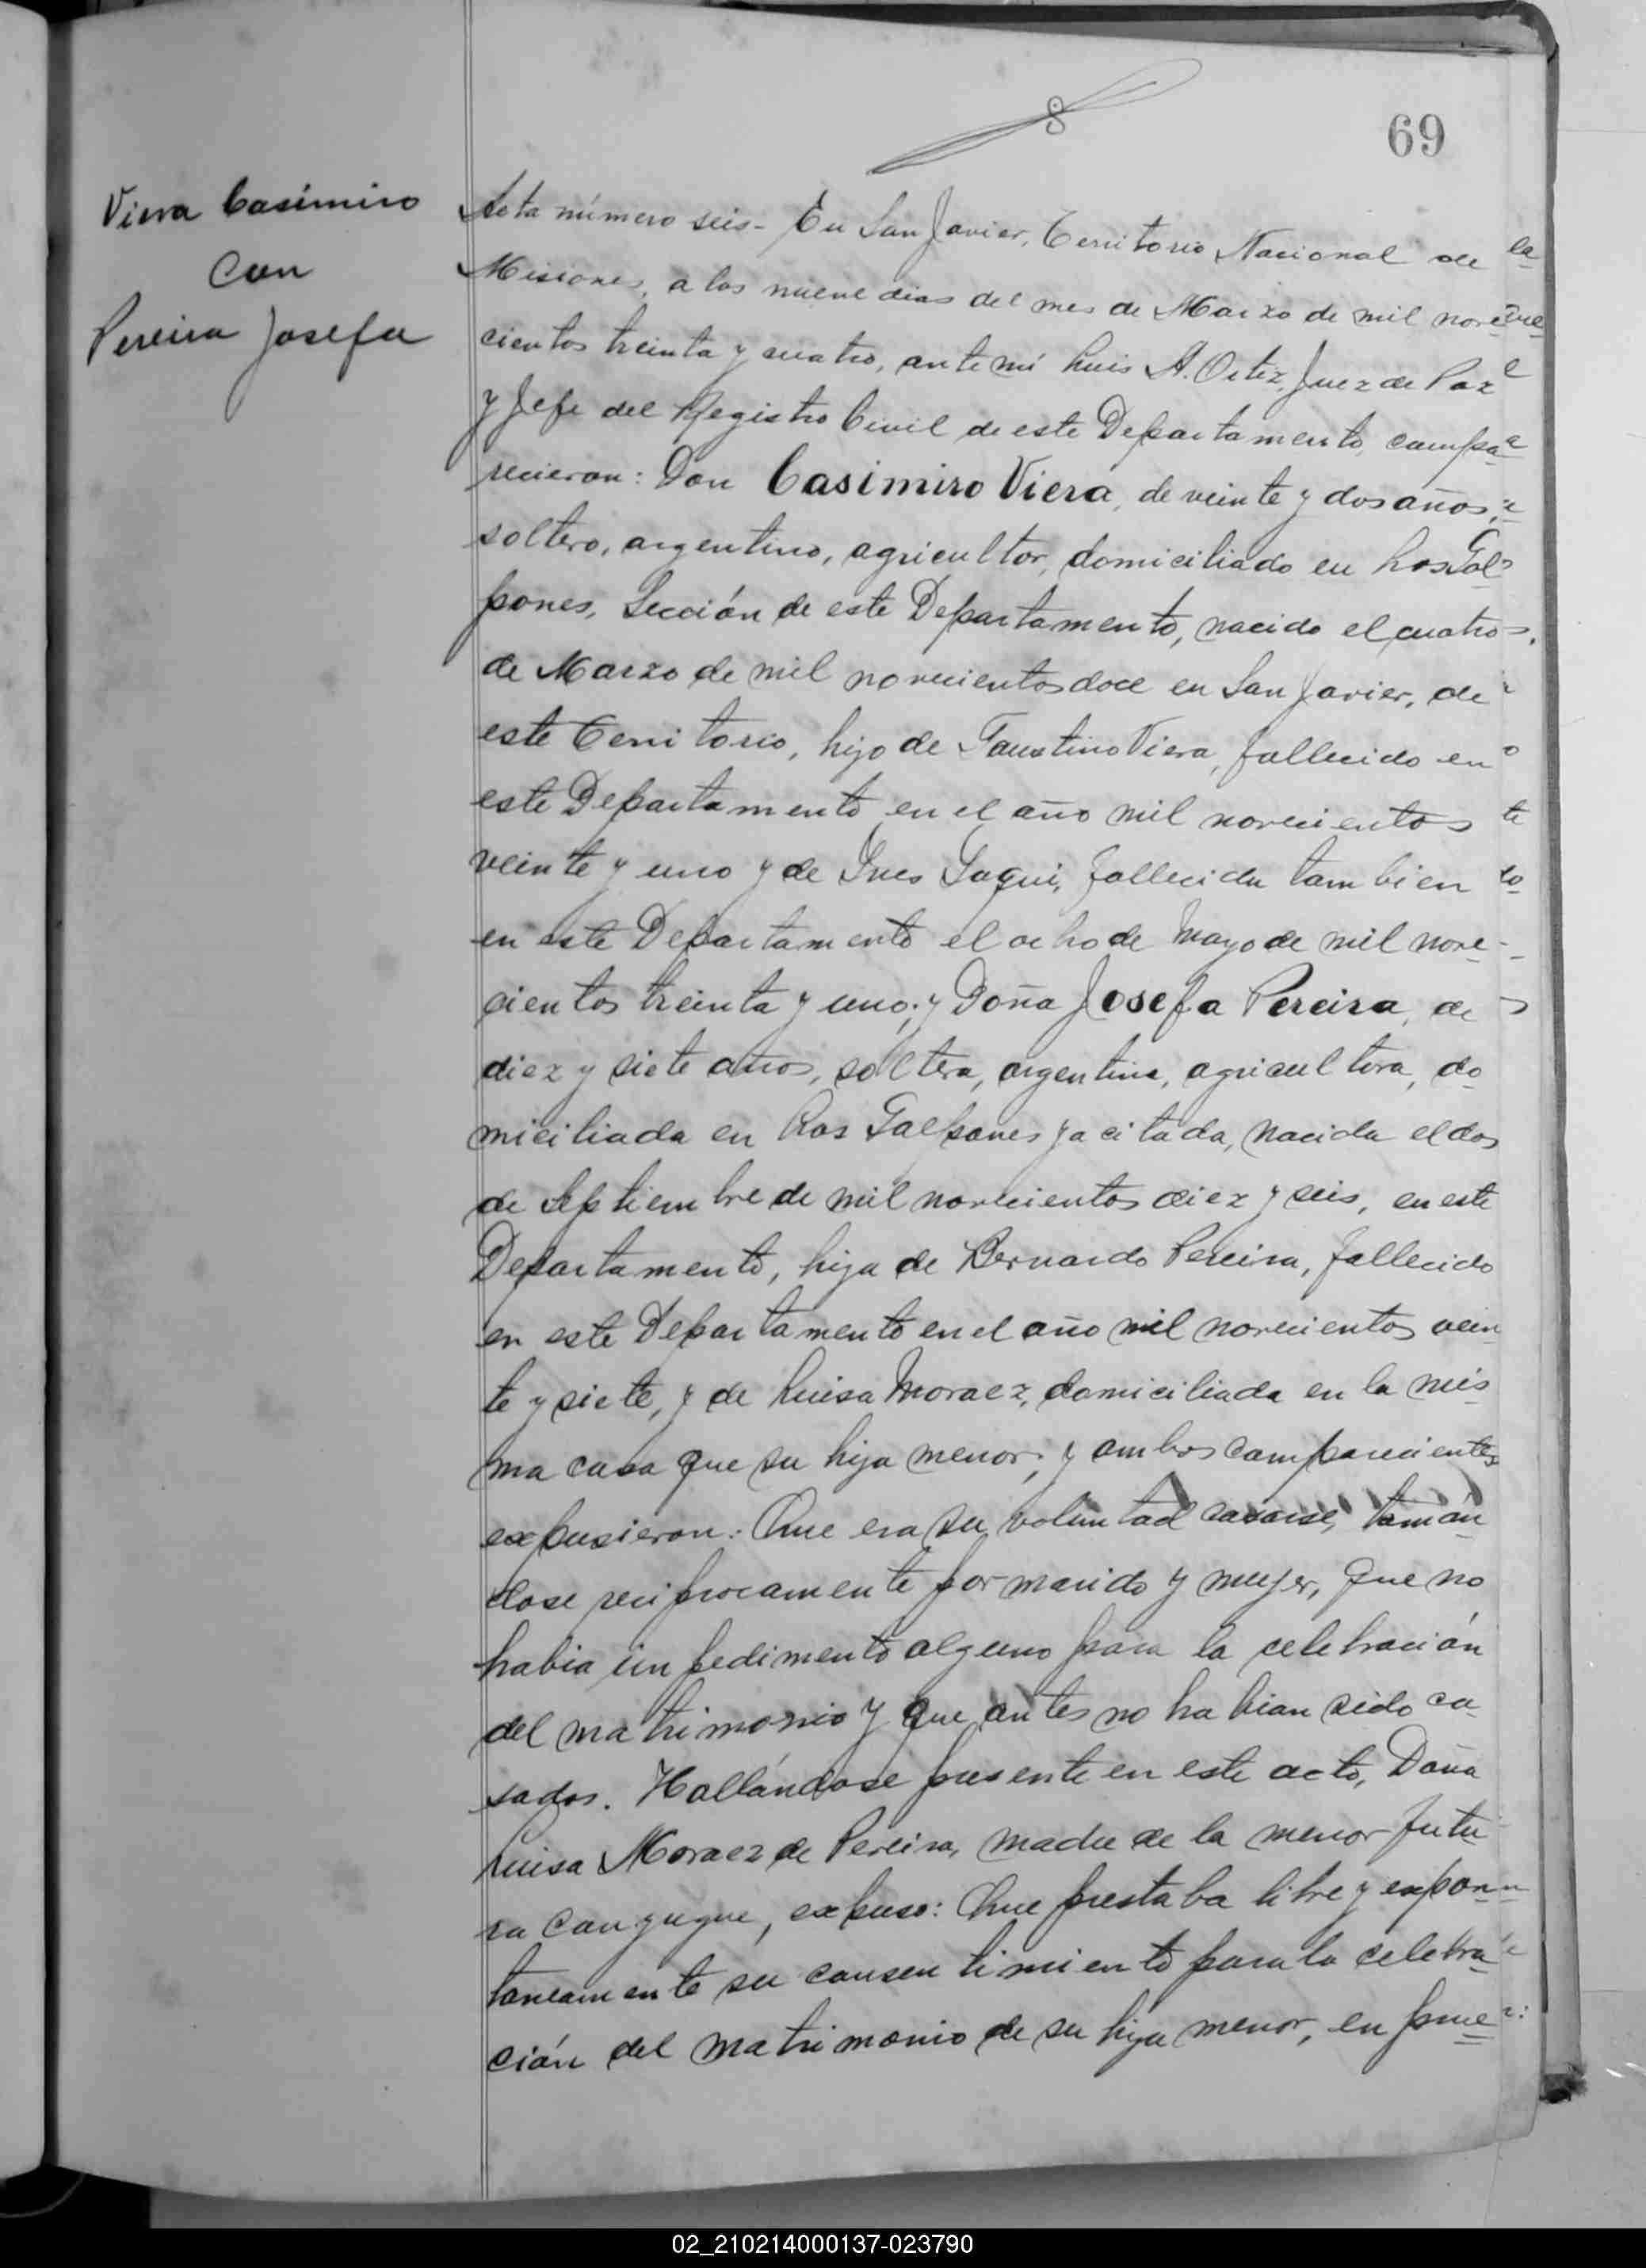 69
Viera Casimiro
con
Pereira Josefa
Acta número seis.- En San Javier, Territorio Nacional de
Misiones, a los nueve dias del mes de Marzo de mil nove
cientos treinta y cuatro, ante mi Luis A. Ortiz, Juez de Paz
y Jefe del Registro Civil de este Departamento, compa
recieron: Don Casimiro Viera, de veinte y dos años,
soltero, argentino, agricultor, domiciliado en Los Gal
pones, Sección de este Departamento, nacido el cuatro
de Marzo de mil novecientos doce en San Javier, de
este Territorio, hijo de Faustino Viera, fallecido en
este Departamento en el año mil novecientos
veinte y uno y de Ines Suqui, fallecida tambien
en este Departamento el ocho de Mayo de mil nove-
cientos treinta y uno; y Doña Josefa Pereira, de
diez y siete años, soltera, argentina, agricultora, do
miciliada en Los Galpones ya citada, nacida el dos
de Septiembre de mil novecientos diez y seis, en este
Departamento, hija de Bernardo Pereira, fallecido
en este Departamento en el año mil novecientos vein
te y siete, y de Luisa Moraez, domiciliada en la mis
ma casa que su hija menor; y ambos comparecientes
expusieron: Que era su voluntad casarse, tomán
dose reciprocamente por marido y mujer, que no
habia impedimento alguno para la celebración
del matrimonio y que antes no habian sido ca
sados. Hallándose presente en este acto, Doña
Luisa Moraez de Pereira, madre de la menor futu
ra conyugue, expuso: Que prestaba libre y expon
taneamente su consentimiento para la celebra
ción del matrimonio de su hija menor, en prue
02_210214000137-023790